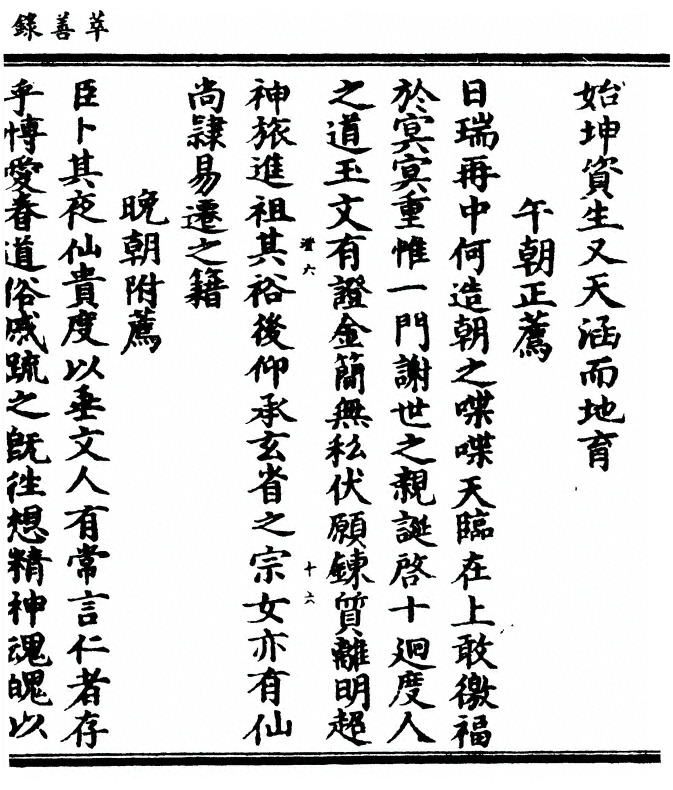 萃善錄
始坤資生又天涵而地育
午朝正薦
日瑞再中何造朝之喋喋天臨在上敢徼福
於冥冥重惟一門謝世之親誕啓十迴度人
之道玉文有證金簡無私伏願鍊質離明超
神旅進祖其裕後仰承玄省之宗女亦有仙
尚隷易遷之籍
晚朝附薦
臣卜其夜仙貴度以垂文人有常言仁者存
乎愽愛眷道俗戚踈之旣徃想精神魂魄以
六
十六